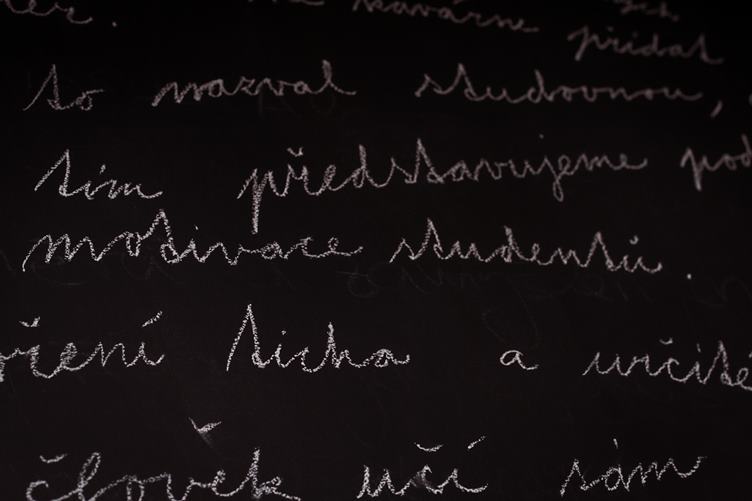 kavárne
přidal
to nazval studovnou,
tím představujeme pod
motivace studentů.
ření ticha a určité
člověk učí sám